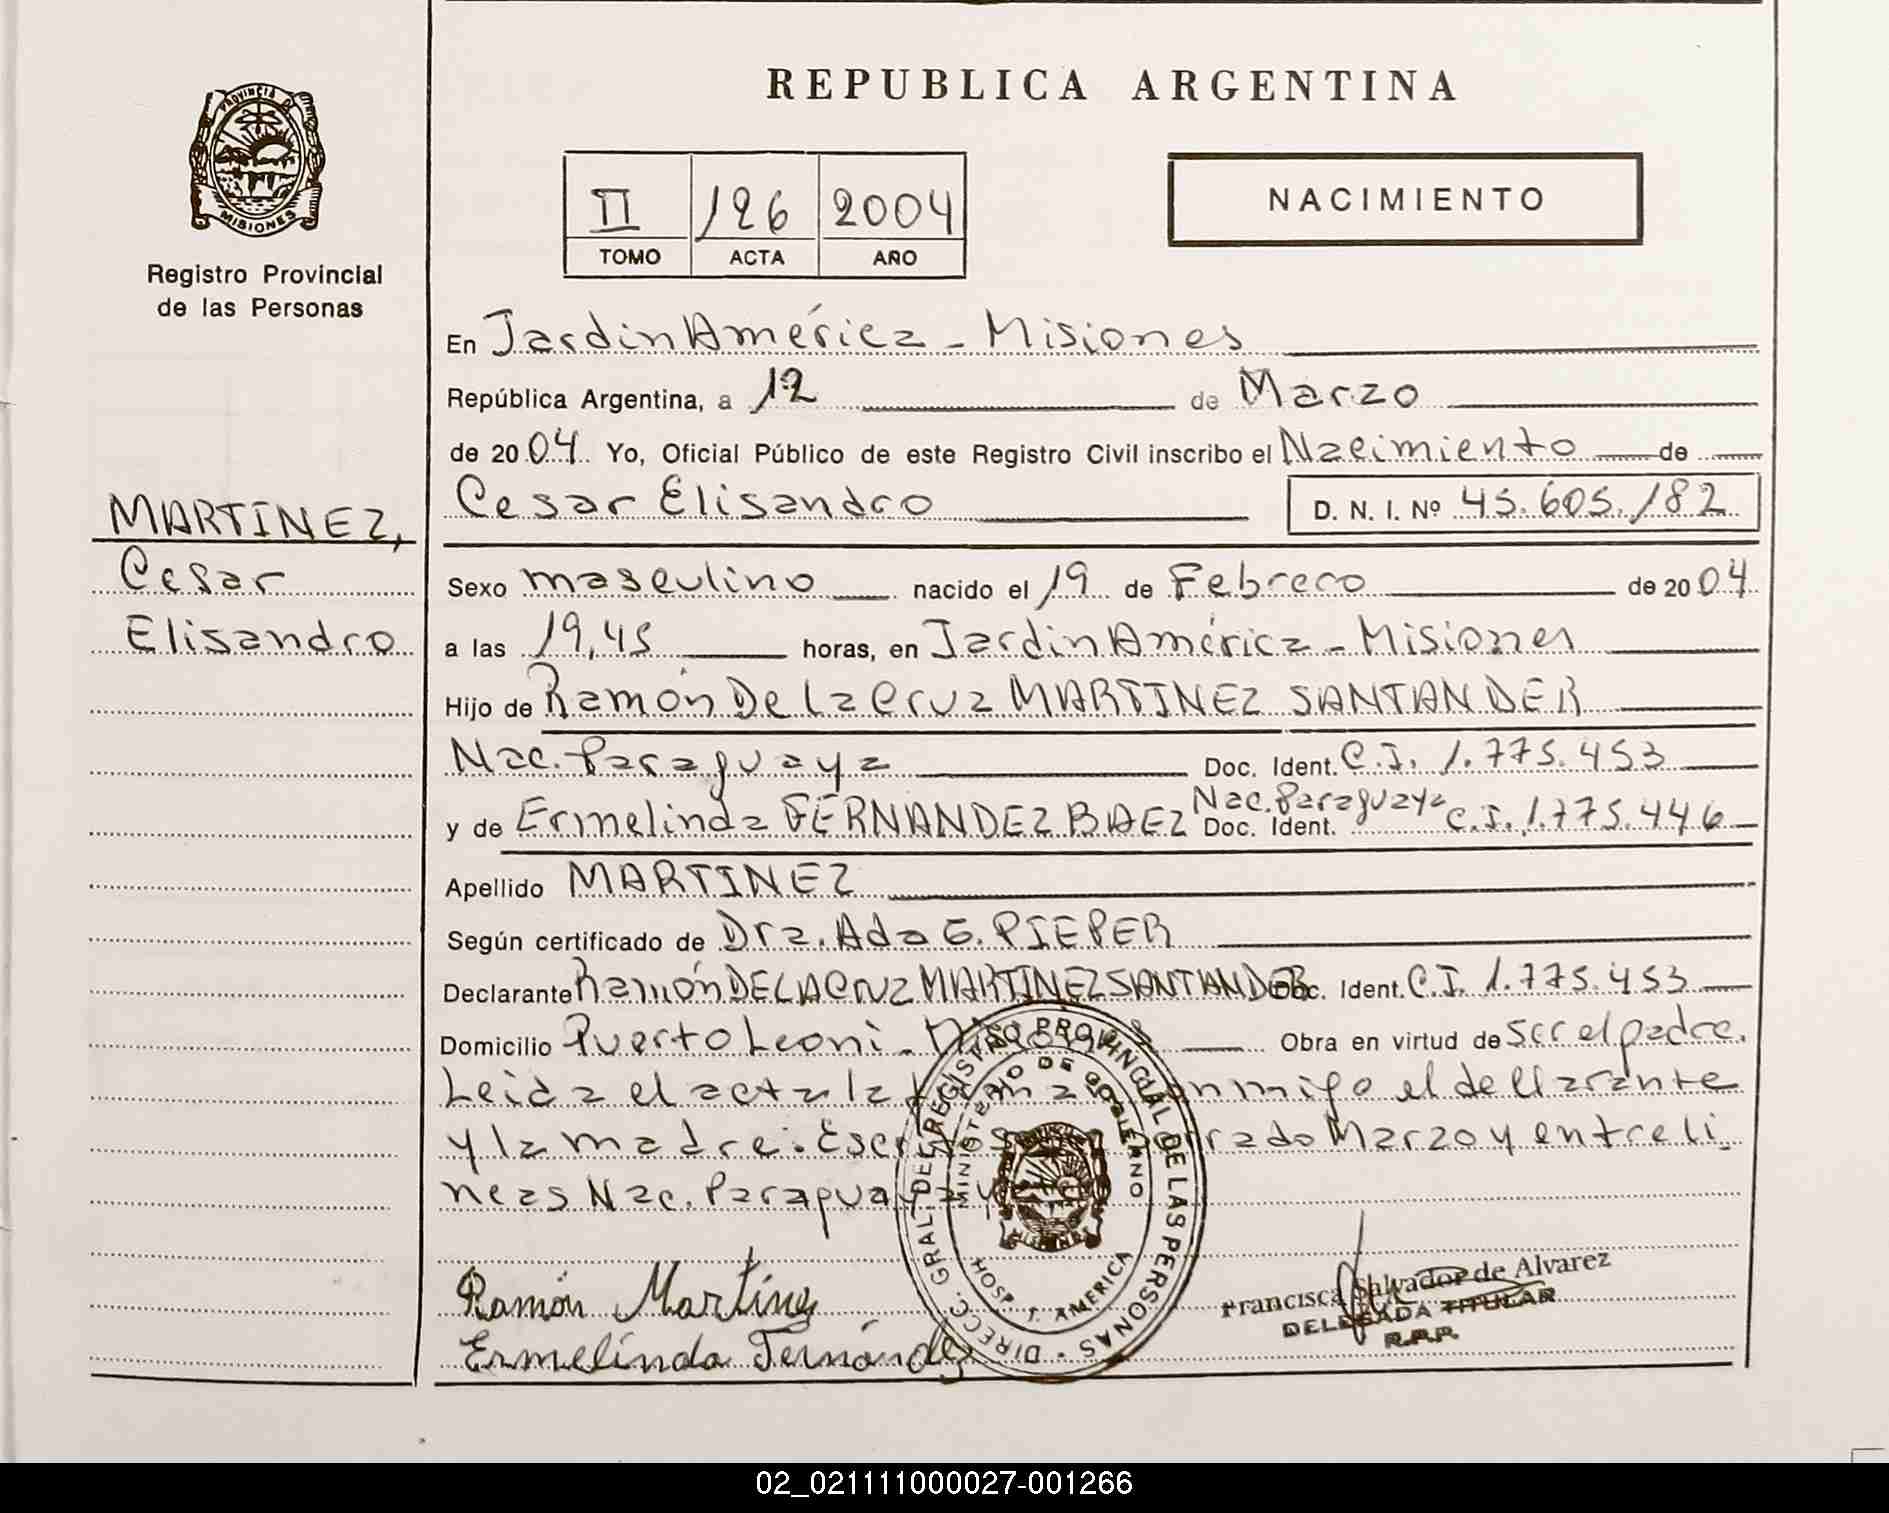 PROVINCIA DE
MISIONES
Registro Provincial
de las Personas
MARTINEZ,
Cesar
Elisandro
REPUBLICA ARGENTINA
II 126 2004
TOMO ACTA AÑO
NACIMIENTO
En Jardin América - Misiones
República Argentina, a 12 de Marzo
de 2004 Yo, Oficial Público de este Registro Civil inscribo el Nacimiento de
Cesar Elisandro D. N. I. Nº 45.605.182
Sexo masculino nacido el 19 de Febrero de 2004
a las 19,45 horas, en Jardin América - Misiones
Hijo de Ramón De la Cruz MARTINEZ SANTANDER
Nac. Paraguaya Doc. Ident. C.I. 1.775.453
y de Ermelinda FERNANDEZ BAEZ Nac. Paraguaya Doc. Ident. C.I. 1.775.446
Apellido MARTINEZ
Según certificado de Dra. Ada G. PIEPER
Declarante Ramón DE LA CRUZ MARTINEZ SANTANDER Doc. Ident. C.I. 1.775.453
Domicilio Puerto Leoni - Misiones Obra en virtud de ser el padre.
Leida el acta la firma conmigo el declarante
y la madre. Escrito sobre Marzo y entre li
neas Nac. Paraguaya y
DIRECC. GRAL. DEL REGISTRO PROVINCIAL DE LAS PERSONAS
MINISTERIO DE GOBIERNO
HOSP. J. AMERICA
MISIONES
Ramón Martínez
Ermelinda Fernández
Francisca Salvador de Alvarez
DELEGADA TITULAR
R.P.P.
02_021111000027-001266